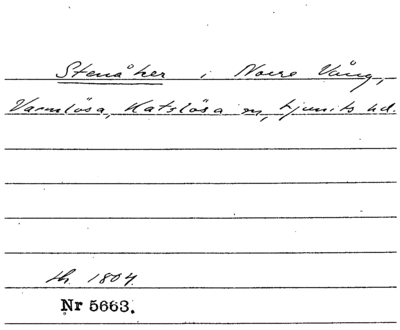 Stenåker i Norre Vång,
Varmlösa, Katslösa sn, Ljunits hd.
sh. 1804.
Nr 5663.